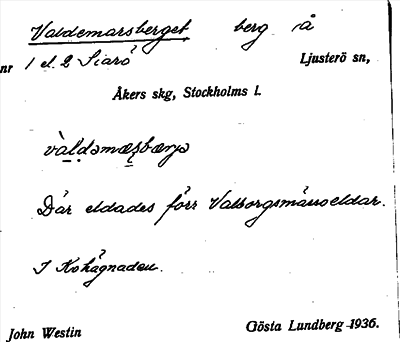 Valdemarsberget berg å
nr 1 o. 2 Siarö Ljusterö sn,
Åkers skg, Stockholms l.
Där eldades förr Valborgsmässoeldar.
I Kohägnaden.
John Westin Gösta Lundberg 1936.